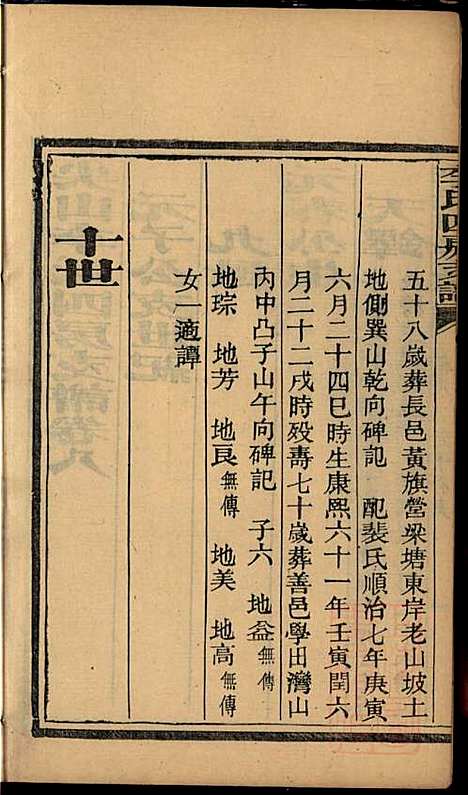 李氏四房支譜
五十八歲葬長邑黃旗營梁塘東岸老山坡土
地側巽山乾向碑記　配裴氏順治七年庚寅
六月二十四巳時生康熙六十一年壬寅閏六
月二十二戌時歿壽七十歲葬善邑學田灣山
丙中凸子山午向碑記　子六　地益無傳
地琮　地芳　地良無傳　地美　地高無傳
女一適譚
十世